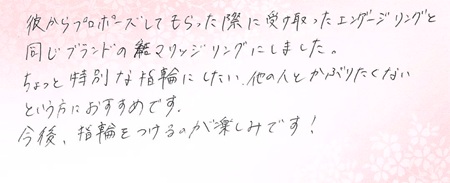 彼からプロポーズしてもらった際に受け取ったエンゲージリングと
同じブランドのマリッジリングにしました。
ちょっと特別な指輪にしたい、他の人とかぶりたくない
という方におすすめです。
今後、指輪をつけるのが楽しみです！